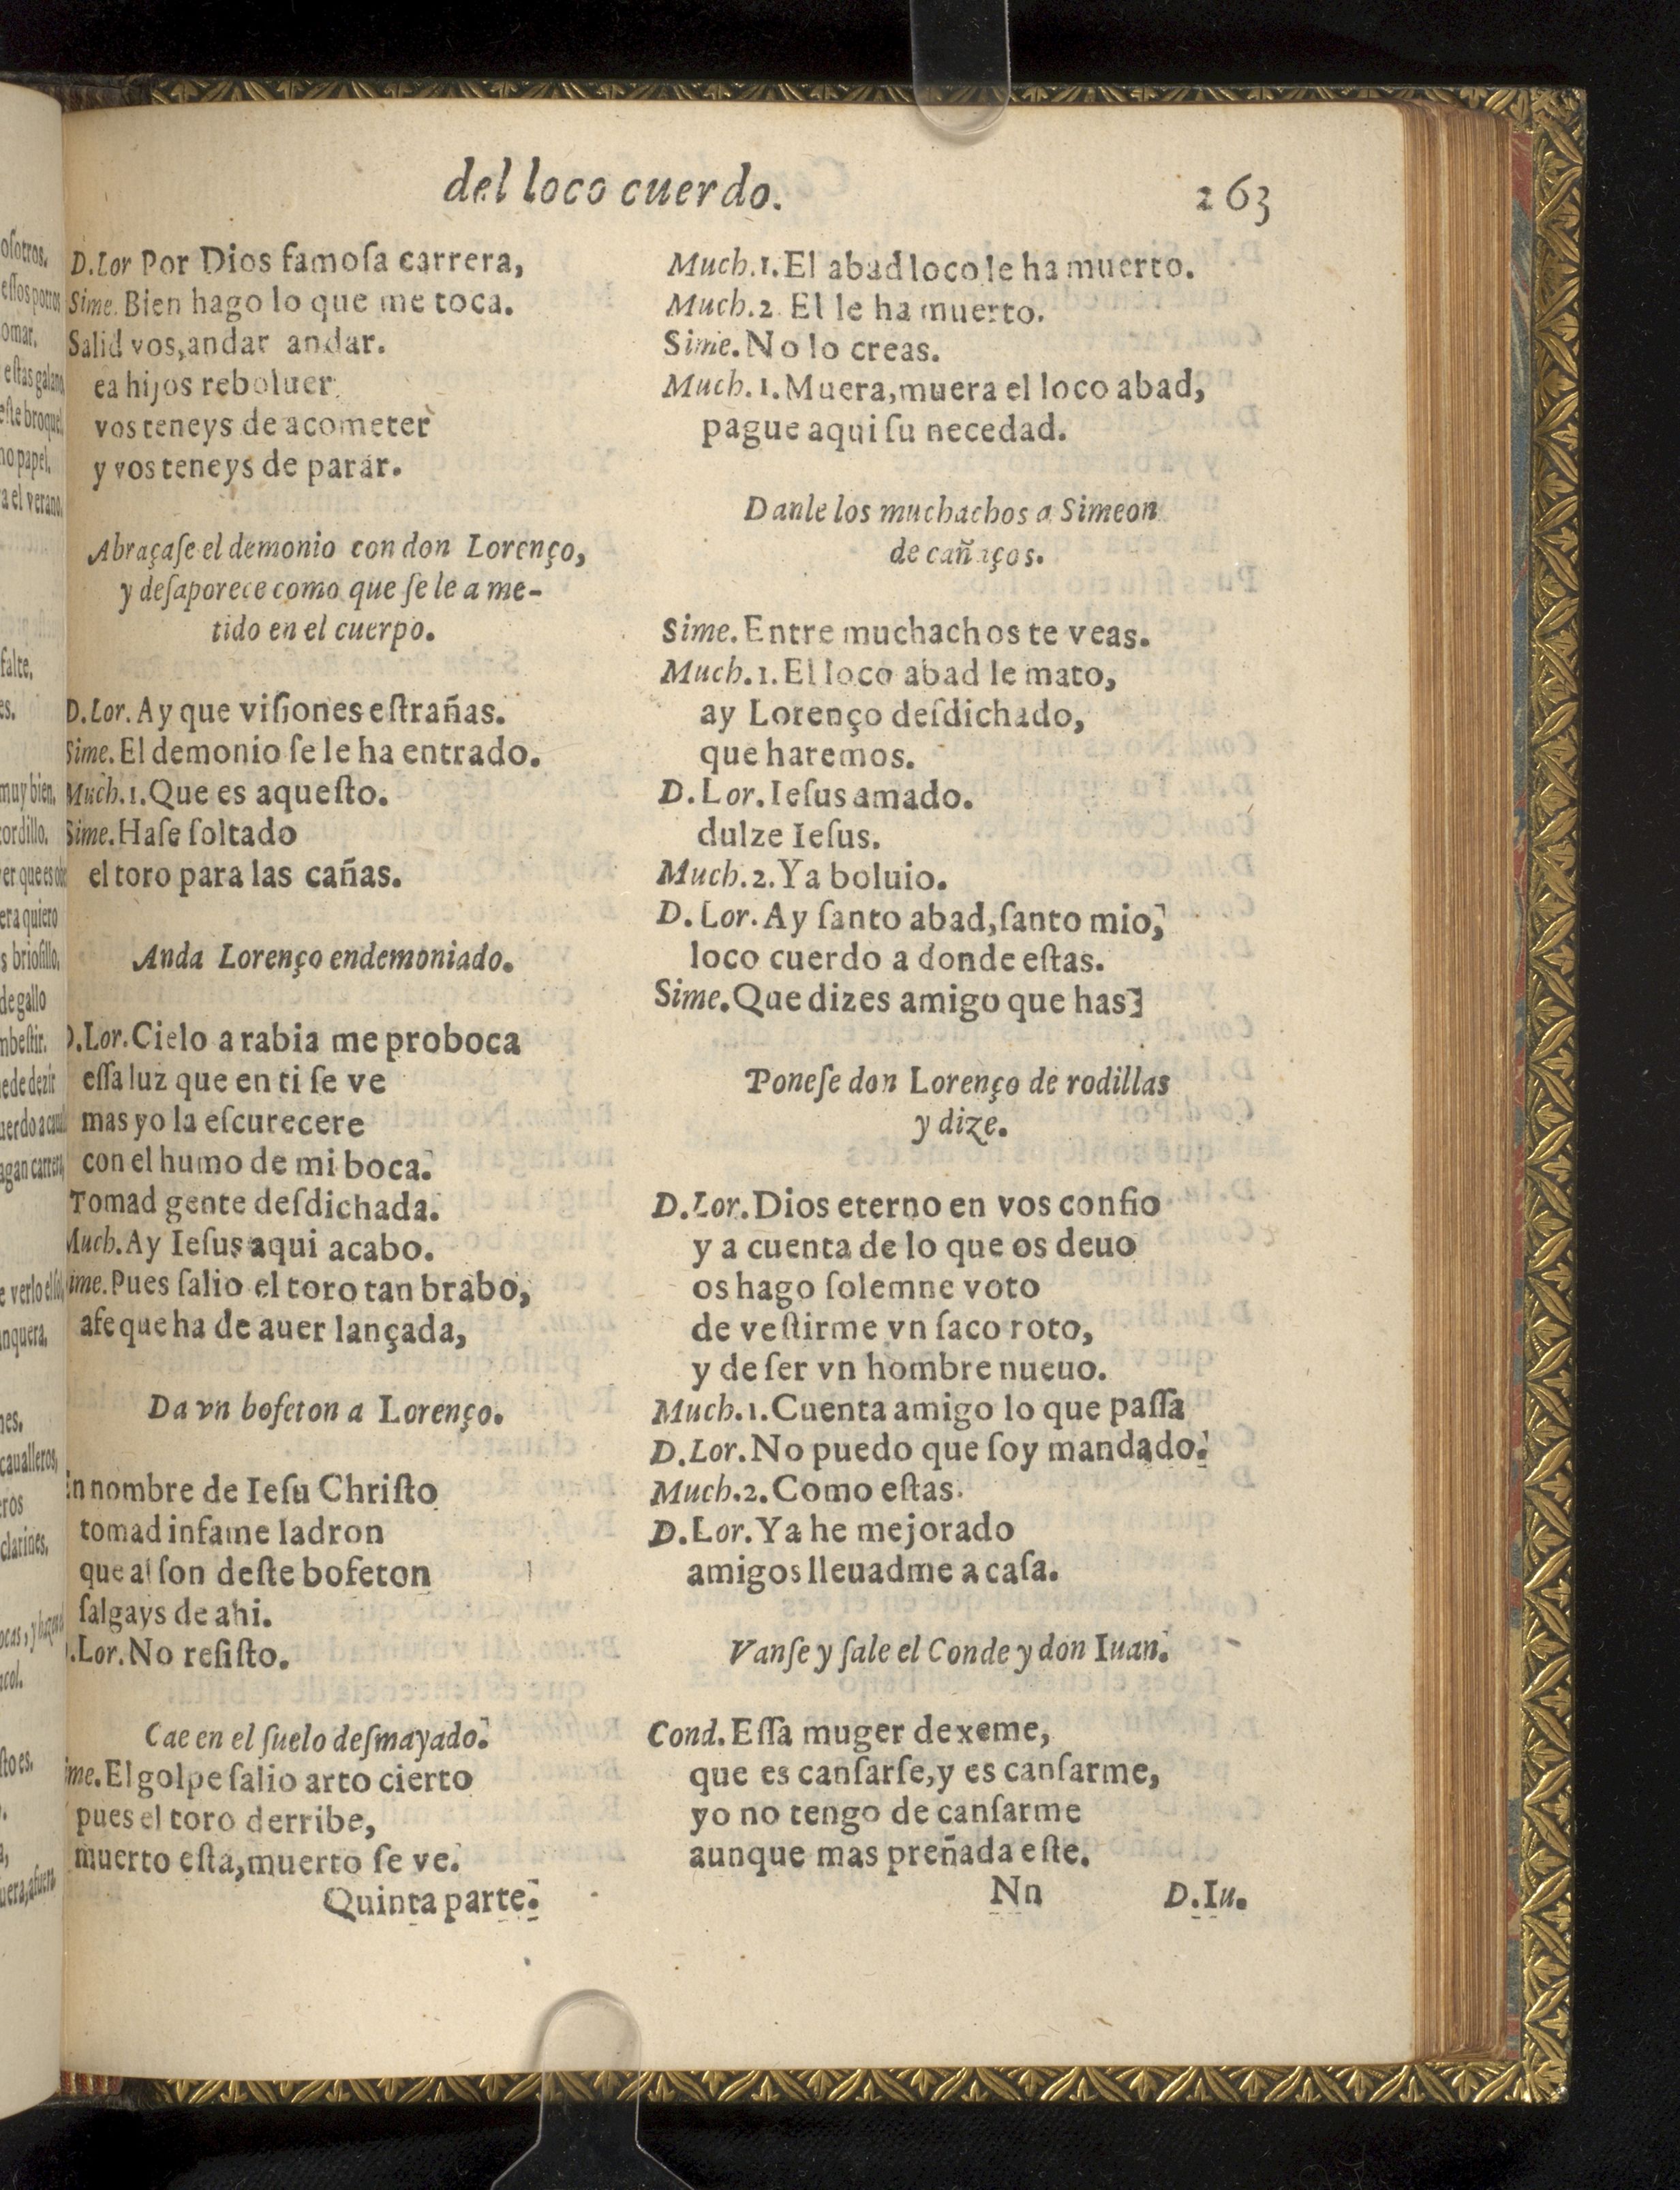 del loco cuerdo.
263
D.Lor Por Dios famoſa carrera,
Sime. Bien hago lo que me toca.
Salid vos, andar andar.
ea hijos reboluer
vos teneys de acometer
y vos teneys de parar.
Abraçaſe el demonio con don Lorenço,
y deſaparece como que ſe le a me-
tido en el cuerpo.
D.Lor. Ay que viſiones eſtrañas.
Sime. El demonio ſe le ha entrado.
Much.1. Que es aqueſto.
Sime. Haſe ſoltado
el toro para las cañas.
Anda Lorenço endemoniado.
D.Lor. Cielo a rabia me proboca
eſſa luz que en ti ſe ve
mas yo la eſcurecere
con el humo de mi boca.
Tomad gente deſdichada.
Much. Ay Ieſus aqui acabo.
Sime. Pues ſalio el toro tan brabo,
afe que ha de auer lançada,
Da vn bofeton a Lorenço.
En nombre de Ieſu Chriſto
tomad infame ladron
que al ſon deſte bofeton
ſalgays de ahi.
D.Lor. No reſiſto.
Cae en el ſuelo deſmayado.
Sime. El golpe ſalio arto cierto
pues el toro derribe,
muerto eſta, muerto ſe ve.
Quinta parte.
Much.1. El abad loco le ha muerto.
Much.2. El le ha muerto.
Sime. No lo creas.
Much.1. Muera, muera el loco abad,
pague aqui ſu necedad.
Danle los muchachos a Simeon
de cañaços.
Sime. Entre muchachos te veas.
Much.1. El loco abad le mato,
ay Lorenço deſdichado,
que haremos.
D.Lor. Ieſus amado.
dulze Ieſus.
Much.2. Ya boluio.
D.Lor. Ay ſanto abad, ſanto mio,
loco cuerdo a donde eſtas.
Sime. Que dizes amigo que has
Poneſe don Lorenço de rodillas
y dize.
D.Lor. Dios eterno en vos confio
y a cuenta de lo que os deuo
os hago ſolemne voto
de veſtirme vn ſaco roto,
y de ſer vn hombre nueuo.
Much.1. Cuenta amigo lo que paſſa
D.Lor. No puedo que ſoy mandado.
Much.2. Como eſtas.
D.Lor. Ya he mejorado
amigos lleuadme a caſa.
Vanſe y ſale el Conde y don Iuan.
Cond. Eſſa muger dexeme,
que es canſarſe, y es canſarme,
yo no tengo de canſarme
aunque mas preñada eſte.
Nn
D.Iu.